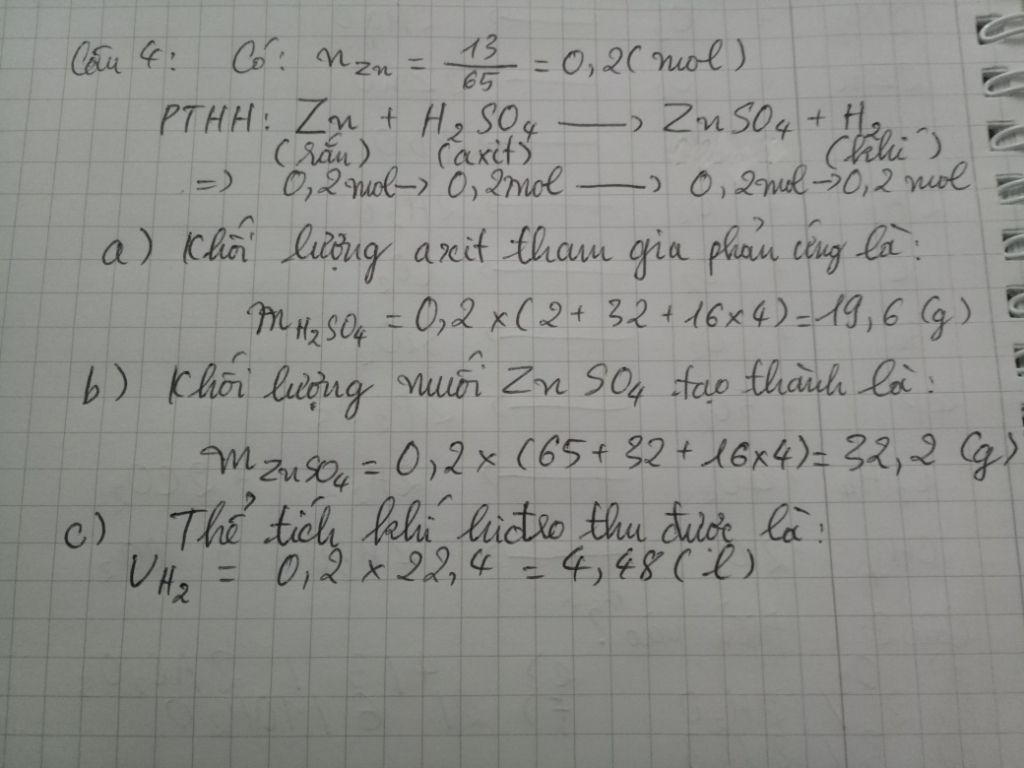 Câu 4: Có: n Zn = 13/65 = 0,2 (mol)
PTHH: Zn + H₂SO₄ → ZnSO₄ + H₂
(rắn) (axit) (khí)
=> 0,2mol → 0,2mol → 0,2mol → 0,2 mol
a) Khối lượng axit tham gia phản ứng là:
m H₂SO₄ = 0,2 × (2 + 32 + 16×4) = 19,6 (g)
b) Khối lượng muối ZnSO₄ tạo thành là:
m ZnSO₄ = 0,2 × (65 + 32 + 16×4) = 32,2 (g)
c) Thể tích khí hiđro thu được là:
V H₂ = 0,2 × 22,4 = 4,48 (l)